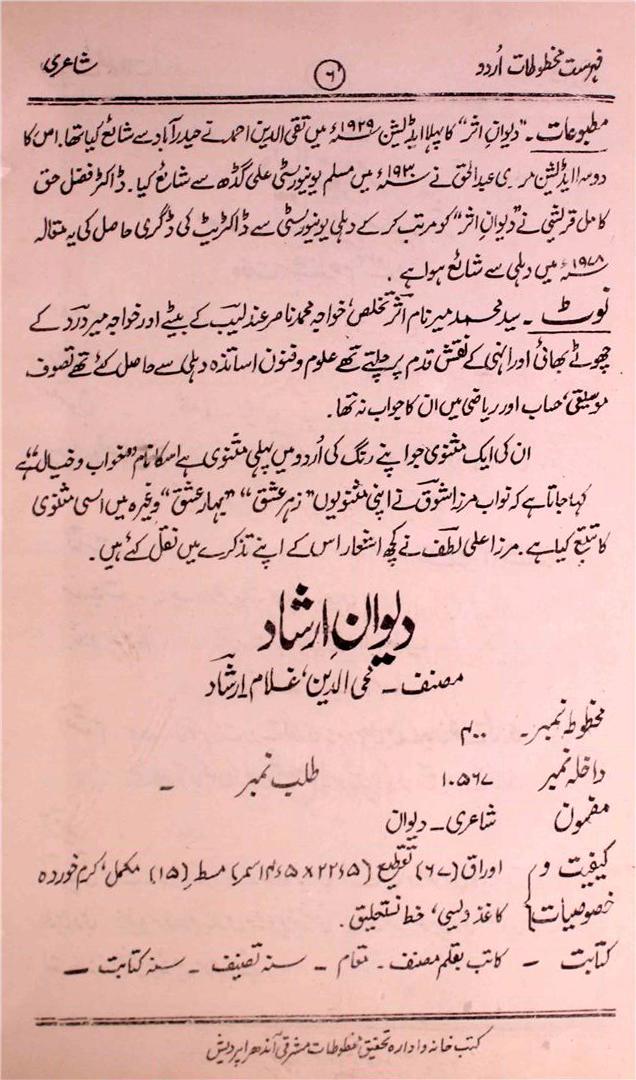 فہرست مخطوطات اُردو ۶ شاعری
مطبوعات ۔ "دیوانِ اثر" کا پہلا ایڈیشن ۱۹۲۹ء میں تقی الدین احمد نے حیدرآباد سے شائع کیا تھا۔ اس کا
دوسرا ایڈیشن عبدالحق نے ۱۹۳۰ء میں مسلم یونیورسٹی علی گڈھ سے شائع کیا۔ ڈاکٹر فضل حق
کامل قریشی نے "دیوانِ اثر" کو مرتب کر کے دہلی یونیورسٹی سے ڈاکٹریٹ کی ڈگری حاصل کی یہ مقالہ
۱۹۷۸ء میں دہلی سے شائع ہوا ہے۔
نوٹ ۔ سید محمد میر نام اثرؔ تخلص، خواجہ محمد ناصر عندلیبؔ کے بیٹے اور خواجہ میر دردؔ کے
چھوٹے بھائی اور انہی کے نقش قدم پر چلتے تھے علوم و فنون اساتذہ دہلی سے حاصل کئے تھے تصوف
موسیقی، حساب اور ریاضی میں ان کا جواب نہ تھا۔
ان کی ایک مثنوی جو اپنے رنگ کی اُردو میں پہلی مثنوی ہے اسکا نام "خواب و خیال" ہے
کہا جاتا ہے کہ نواب مرزا شوقؔ نے اپنی مثنویوں "زہر عشق" "بہار عشق" وغیرہ میں اسی مثنوی
کا تتبع کیا ہے۔ مرزا علی لطفؔ نے کچھ اشعار اس کے اپنے تذکرے میں نقل کئے ہیں۔
دیوانِ ارشاد
مصنف ۔ محی الدین، غلام ارشادؔ
مخطوطہ نمبر ۔ ۴۰۰
داخلہ نمبر ۱۰۵۶۷ طلب نمبر ۔
مضمون شاعری ۔ دیوان
کیفیت و اوراق (۶۷) تقطیع (۲۲٫۵ × ۱۴٫۵ سمر) مسطر (۱۵) مکمل، کرم خوردہ
خصوصیات کاغذ دیسی، خط نستعلیق۔
کتابت ۔ کاتب بقلم مصنف ۔ مقام ۔ سنہ تصنیف ۔ سنہ کتابت ۔
کتب خانہ و ادارہ تحقیق مخطوطات مشرقی آندھرا پردیش